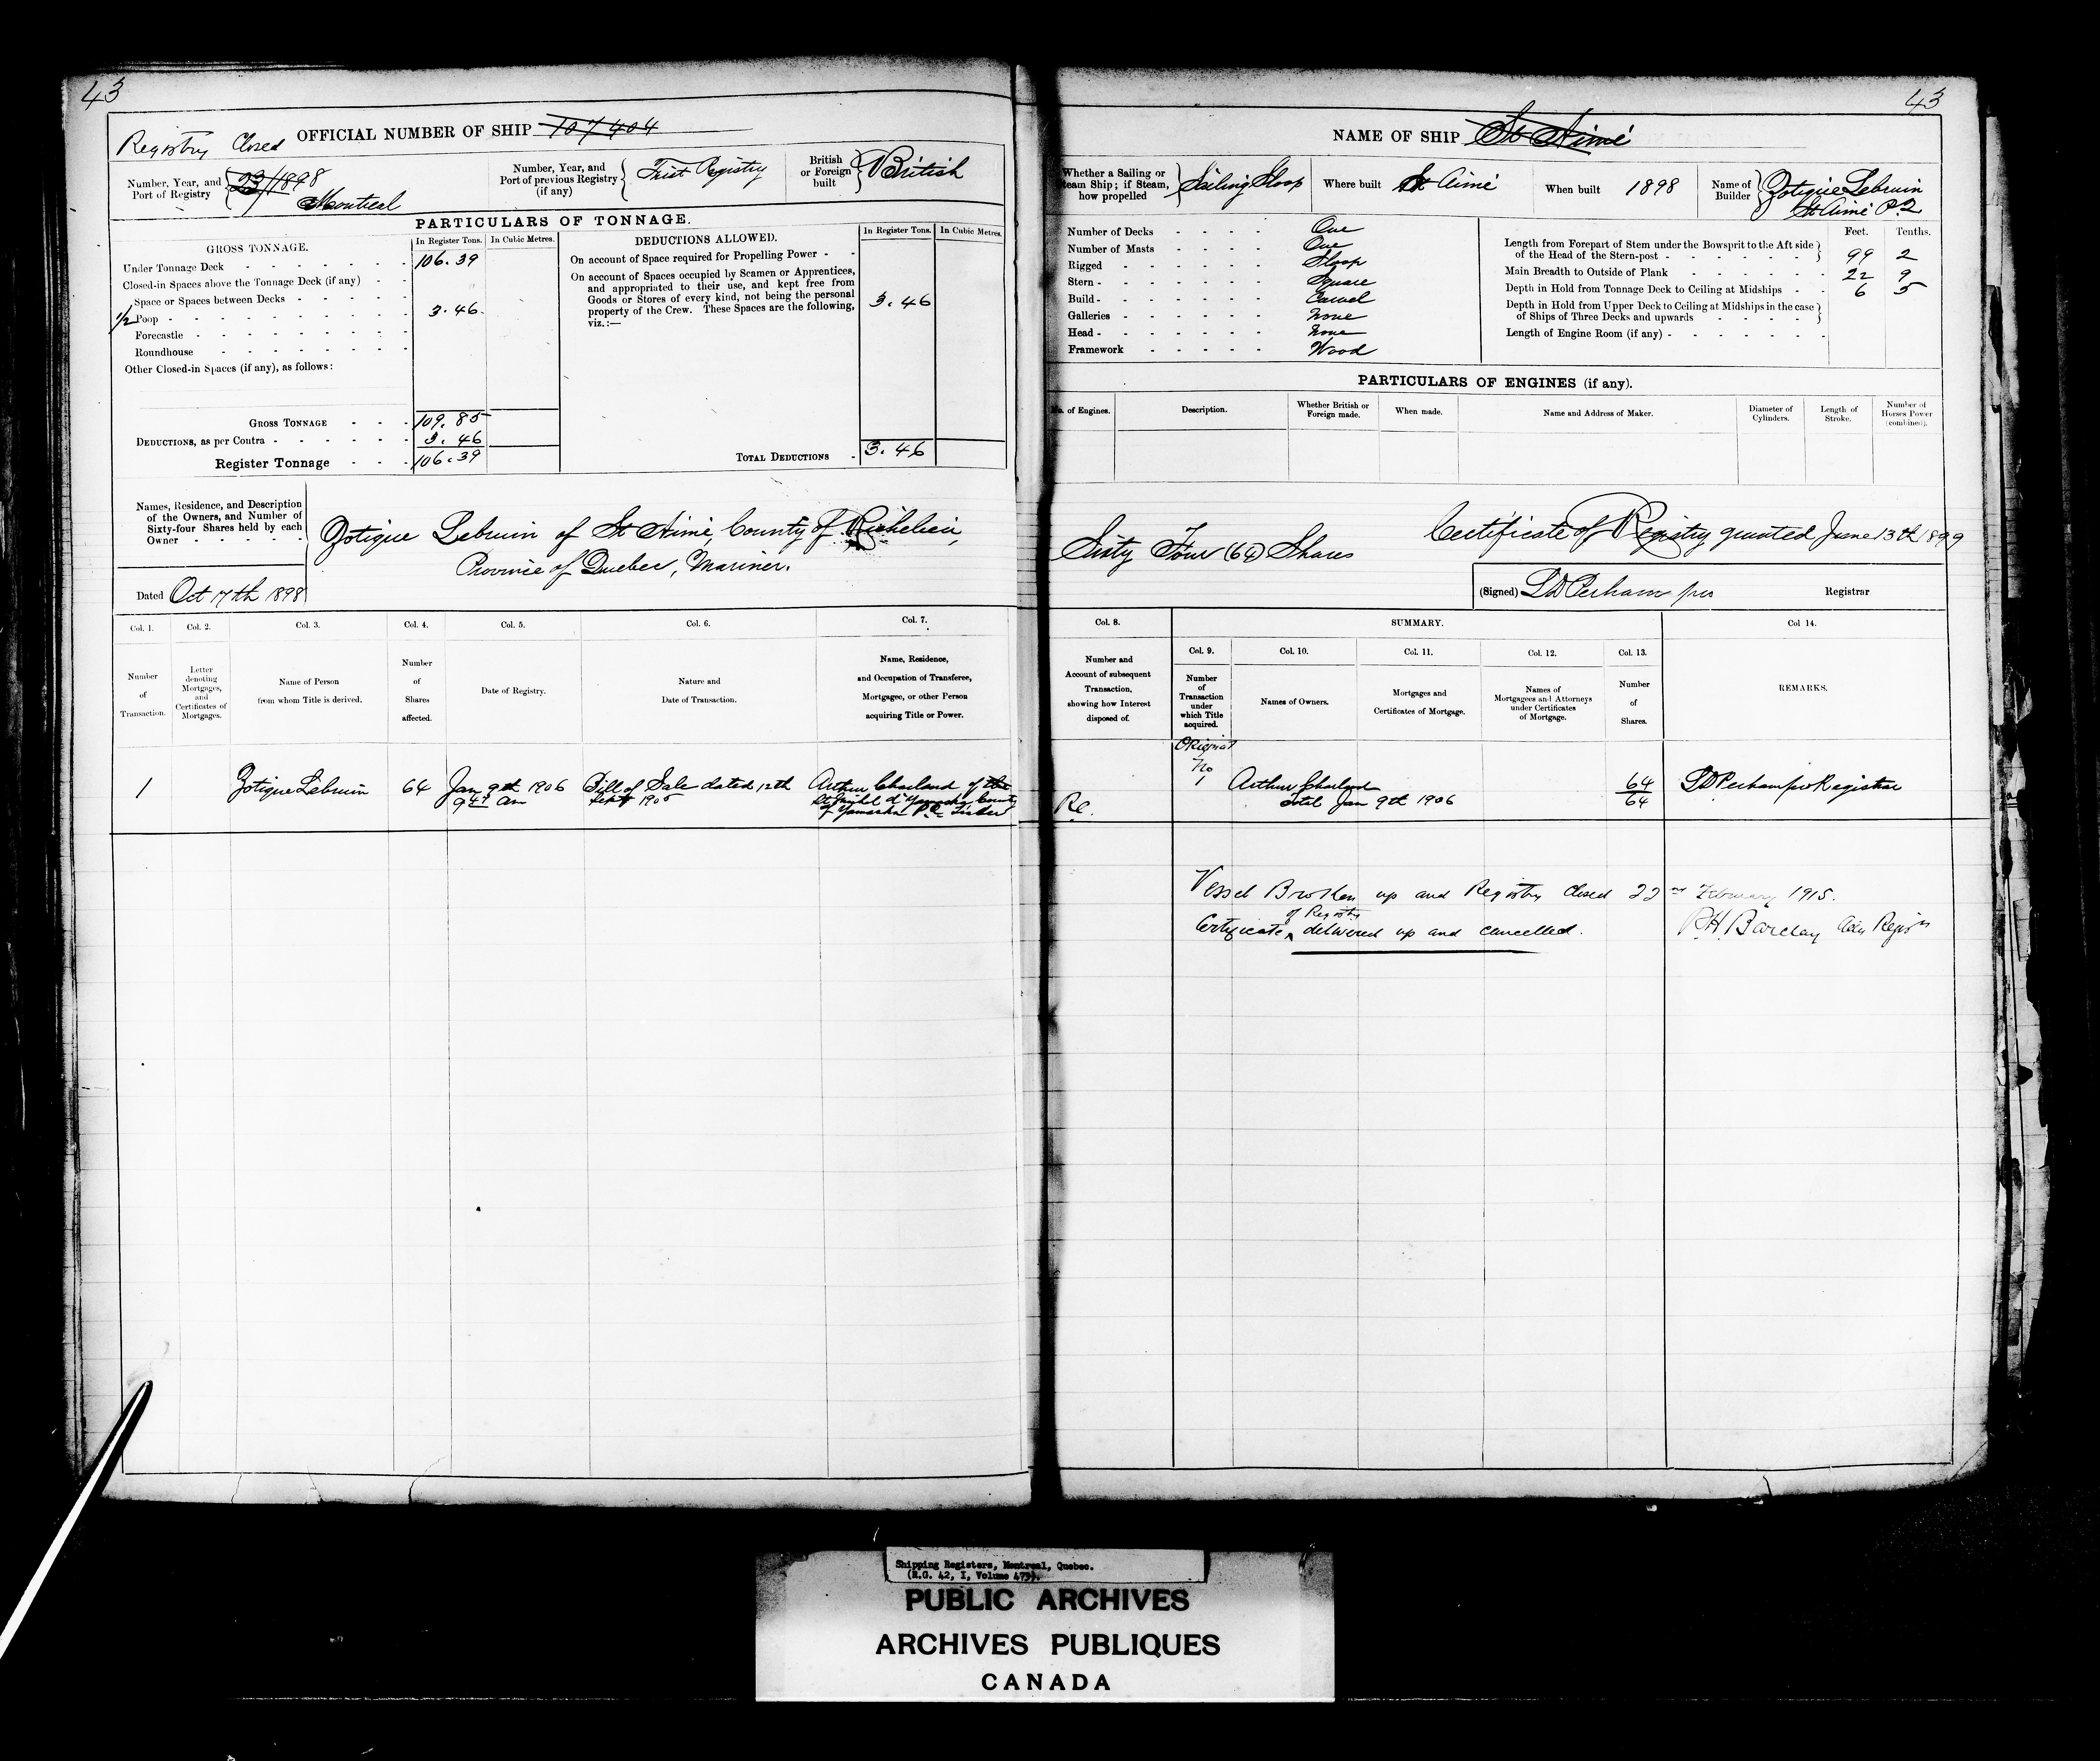 43
Registry Closed
OFFICIAL NUMBER OF SHIP 107404
Number, Year, and Port of Registry 23/1898 Montreal
Number, Year, and Port of previous Registry (if any) First Registry
British or Foreign built British
PARTICULARS OF TONNAGE.
GROSS TONNAGE.
In Register Tons. In Cubic Metres.
Under Tonnage Deck 106.39
Closed-in Spaces above the Tonnage Deck (if any)
Space or Spaces between Decks
1/2 Poop 3.46
Forecastle
Roundhouse
Other Closed-in Spaces (if any), as follows:
GROSS TONNAGE 109.85
DEDUCTIONS, as per Contra 3.46
Register Tonnage 106.39
DEDUCTIONS ALLOWED.
In Register Tons. In Cubic Metres.
On account of Space required for Propelling Power
On account of Spaces occupied by Seamen or Apprentices,
and appropriated to their use, and kept free from
Goods or Stores of every kind, not being the personal
property of the Crew. These Spaces are the following,
viz.:— 3.46
TOTAL DEDUCTIONS 3.46
Names, Residence, and Description
of the Owners, and Number of
Sixty-four Shares held by each
Owner
Zotique Lebrun of St Aimé, County of Richelieu,
Province of Quebec, Mariner.
Dated Oct 17th 1898
Col. 1. Col. 2. Col. 3. Col. 4. Col. 5. Col. 6. Col. 7.
Number of Transaction.
Letter denoting Mortgages, and Certificates of Mortgages.
Name of Person from whom Title is derived.
Number of Shares affected.
Date of Registry.
Nature and Date of Transaction.
Name, Residence, and Occupation of Transferee, Mortgagee, or other Person acquiring Title or Power.
1
Zotique Lebrun
64
Jan 9th 1906
9 am
Bill of Sale dated 12th
Sept 1905
Arthur Charland of the
d'Yamaska County
of Yamaska
43
NAME OF SHIP St Aimé
Whether a Sailing or Steam Ship; if Steam, how propelled Sailing Sloop
Where built St Aimé
When built 1898
Name of Builder Zotique Lebrun
St Aimé P.Q
Number of Decks One
Number of Masts One
Rigged Sloop
Stern Square
Build Carvel
Galleries None
Head None
Framework Wood
Feet. Tenths.
Length from Forepart of Stem under the Bowsprit to the Aft side
of the Head of the Stern-post 99 2
Main Breadth to Outside of Plank 22 9
Depth in Hold from Tonnage Deck to Ceiling at Midships 6 5
Depth in Hold from Upper Deck to Ceiling at Midships in the case
of Ships of Three Decks and upwards
Length of Engine Room (if any)
PARTICULARS OF ENGINES (if any).
No. of Engines. Description. Whether British or Foreign made. When made. Name and Address of Maker. Diameter of Cylinders. Length of Stroke. Number of Horses Power (combined).
Sixty Four (64) Shares
Certificate of Registry granted June 13th 1899
(Signed) LD Perham pro Registrar
Col. 8. SUMMARY. Col 14.
Col. 9. Col. 10. Col. 11. Col. 12. Col. 13.
Number and Account of subsequent Transaction, showing how Interest disposed of.
Number of Transaction under which Title acquired.
Names of Owners.
Mortgages and Certificates of Mortgage.
Names of Mortgagees and Attorneys under Certificates of Mortgage.
Number of Shares.
REMARKS.
Original
No
1
Arthur Charland
Jan 9th 1906
64
64
LD Perham pro Registrar
Vessel Broken up and Registry Closed 22nd February 1915.
Certificate of Registry delivered up and cancelled.
RH Barclay
Shipping Registers, Montreal, Quebec.
(R.G. 42, I, Volume
PUBLIC ARCHIVES
ARCHIVES PUBLIQUES
CANADA